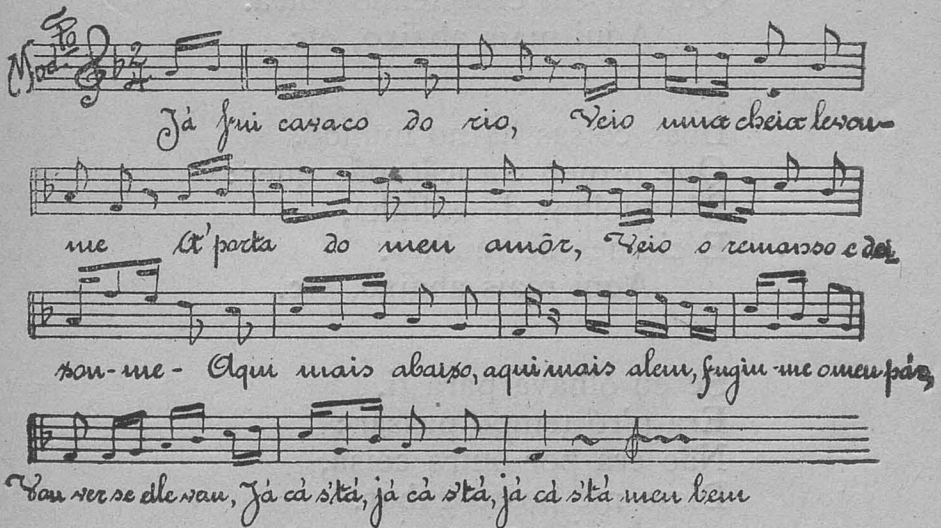 Mod.to
Já fui cavaco do rio, Veio uma cheia levou-
me A'porta do meu amôr, Veio o remanso e dei
xou-me - Aqui mais abaixo, aqui mais alem, fugiu-me o meu pár,
Vou ver se elle vem, Já cá s'tá, já cá s'tá, já cá s'tá meu bem